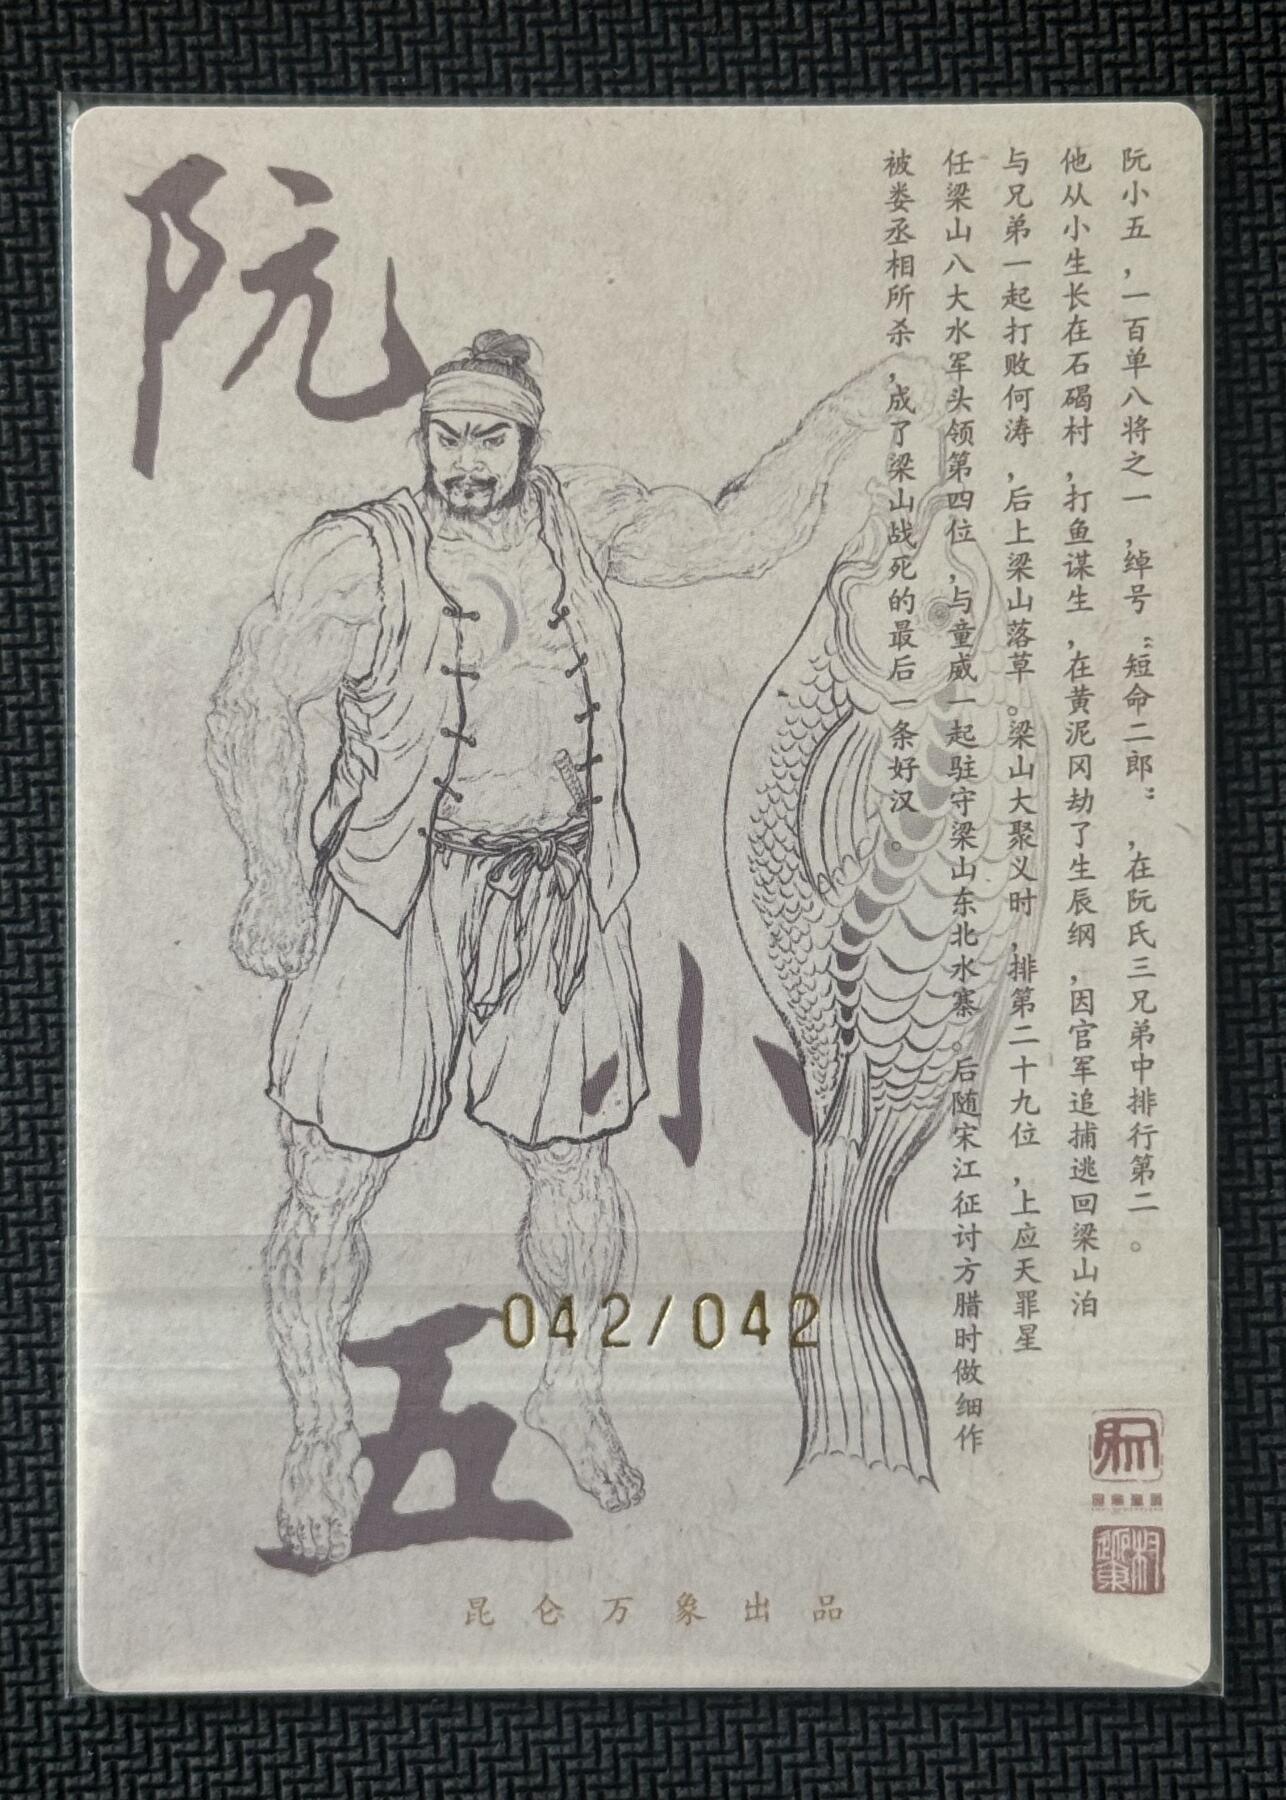 阮小五
阮小五，一百单八将之一，绰号“短命二郎”，在阮氏三兄弟中排行第二。
他从小生长在石碣村，打鱼谋生，在黄泥冈劫了生辰纲，因官军追捕逃回梁山泊
与兄弟一起打败何涛，后上梁山落草。梁山大聚义时，排第二十九位，上应天罪星
任梁山八大水军头领第四位，与童威一起驻守梁山东北水寨。后随宋江征讨方腊时做细作
被娄丞相所杀，成了梁山战死的最后一条好汉。
042/042
昆仑万象出品